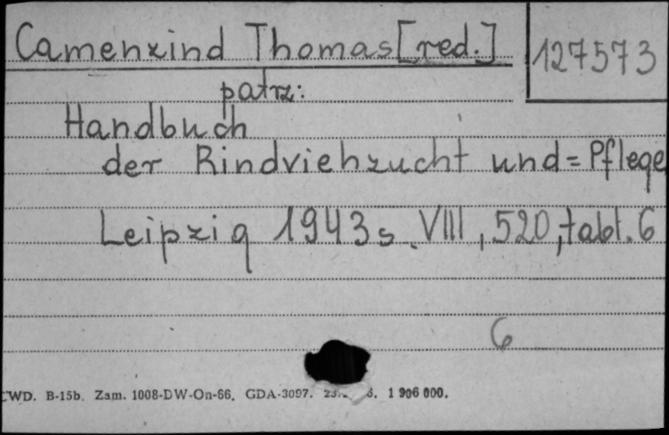 Camenzind Thomas [red.]
127573
patrz:
Handbuch
der Rindviehzucht und=Pflege
Leipzig 1943 s. VIII, 520, tabl. 6
6
CWD. B-15b. Zam. 1008-DW-On-66. GDA-3097. 1 906 000.